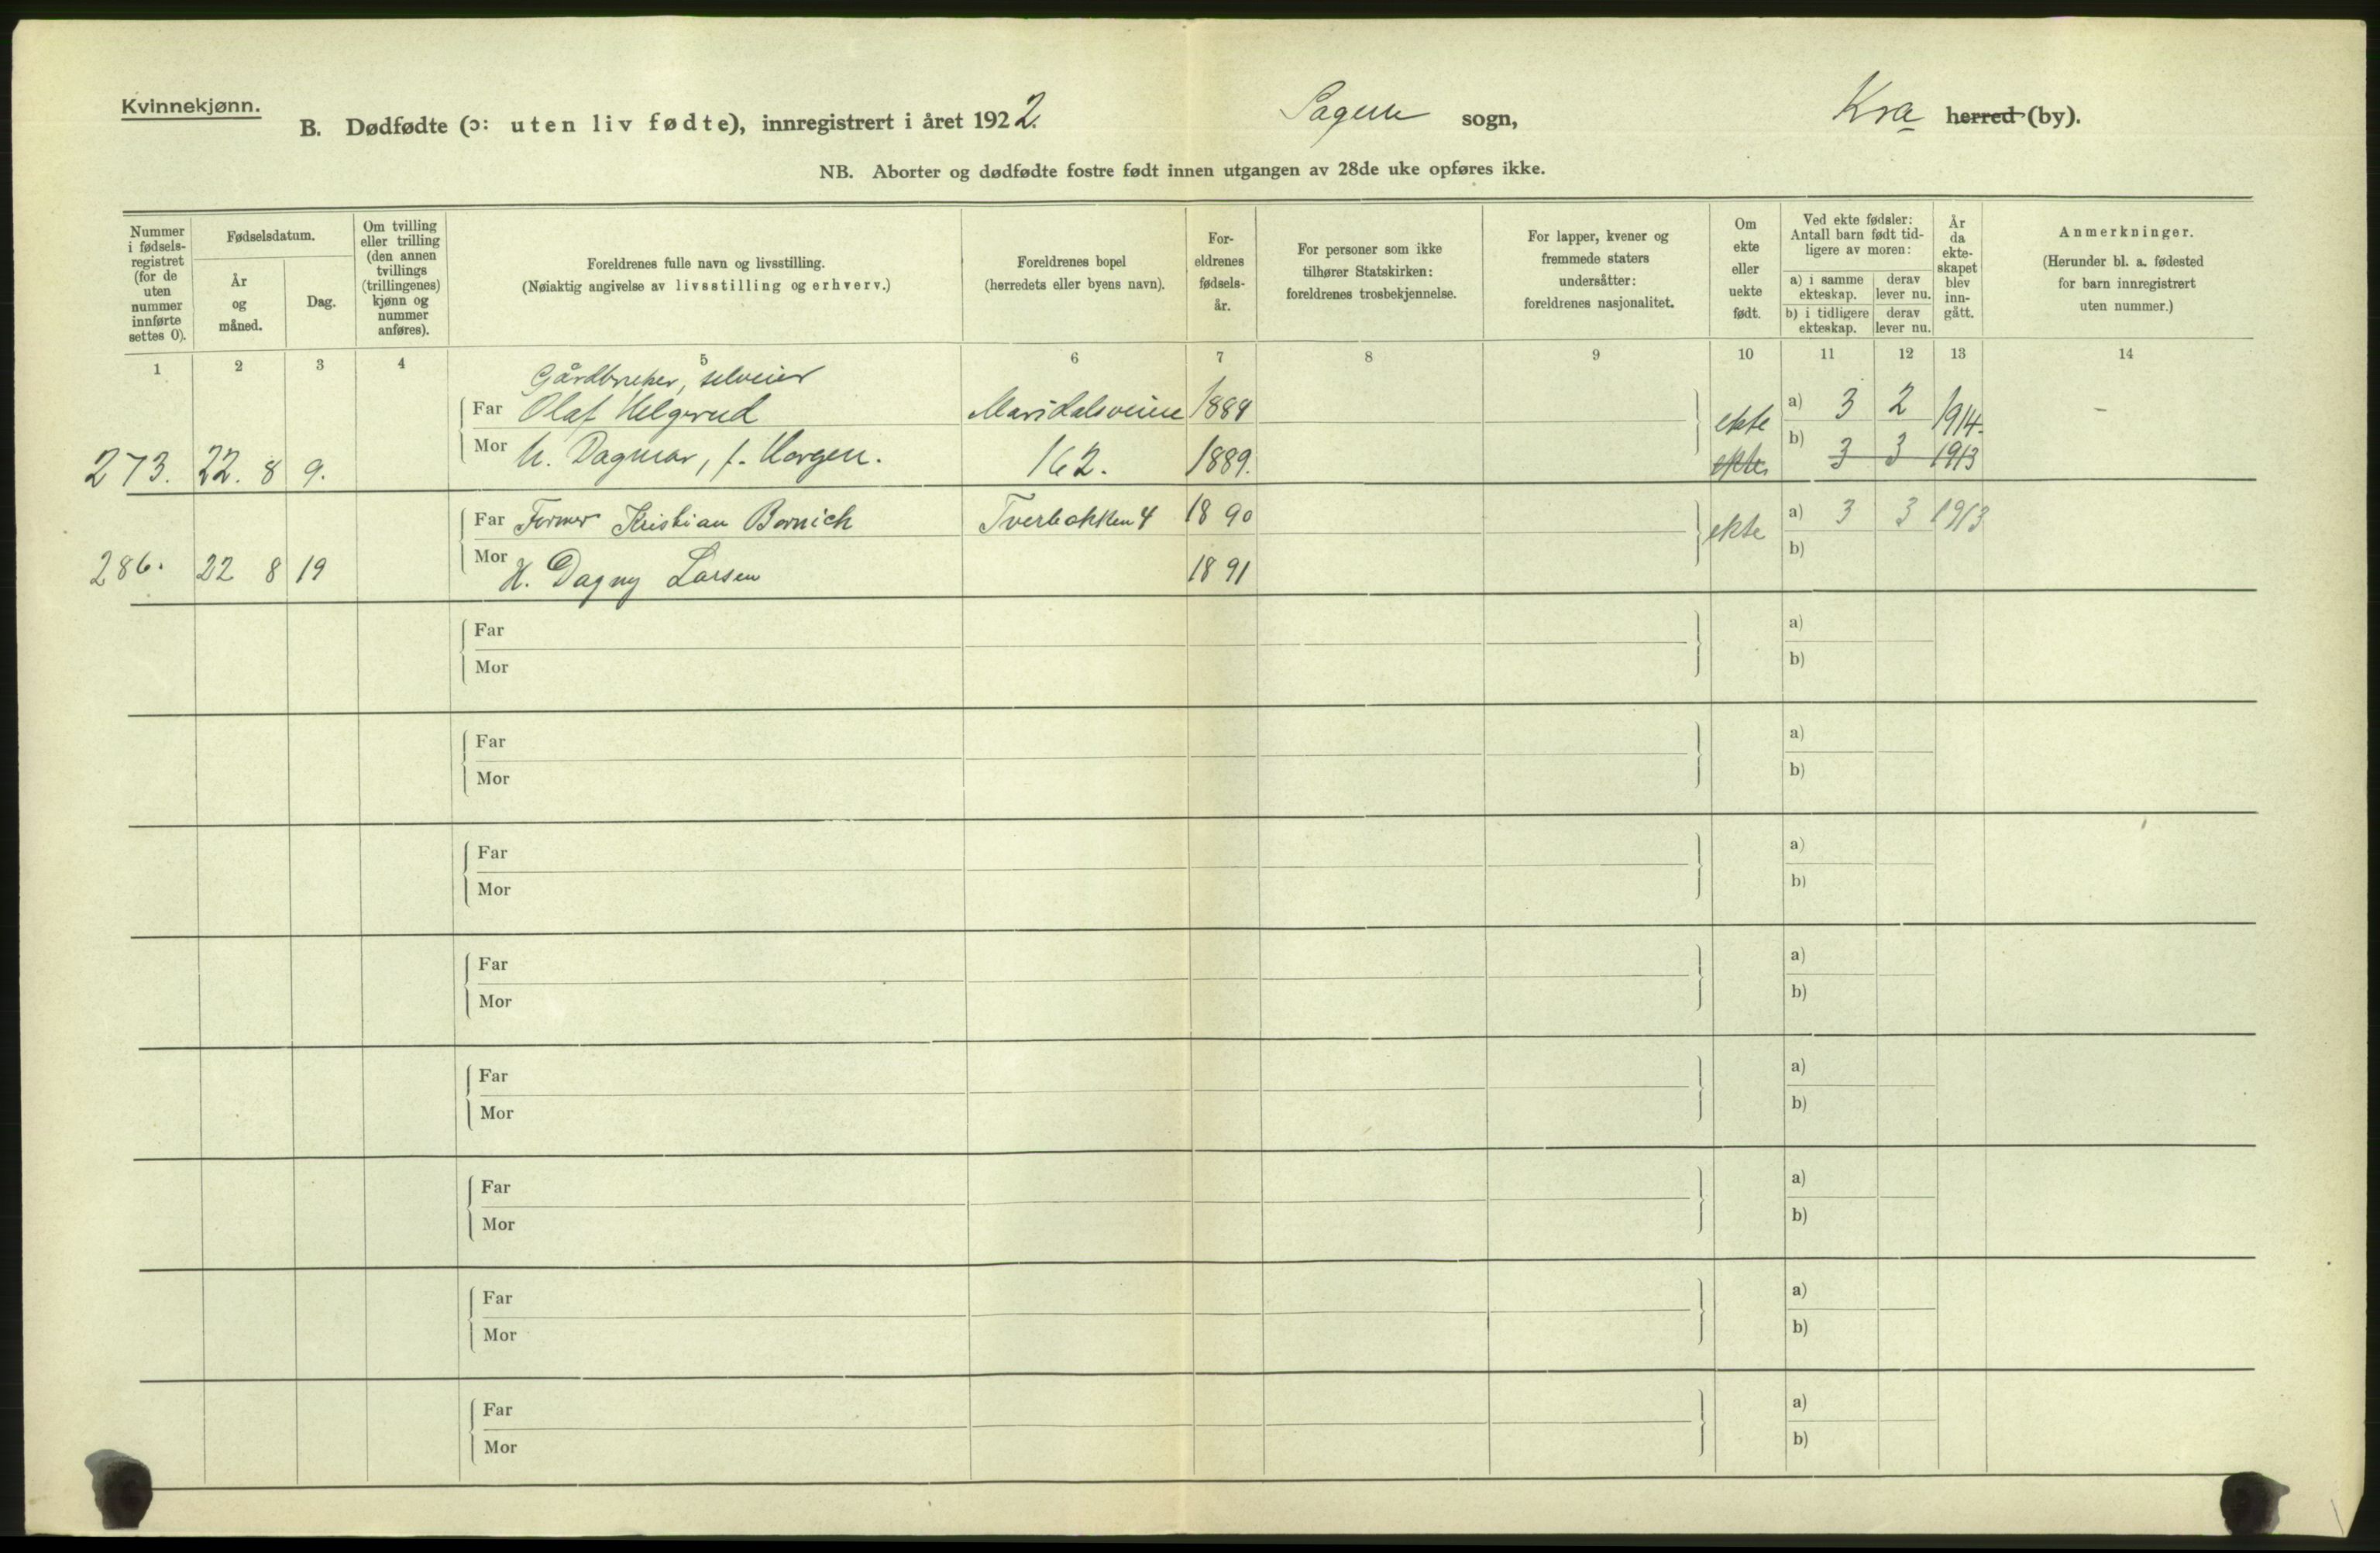 Kvinnekjønn.
B. Dødfødte (ɔ: uten liv fødte), innregistrert i året 1922. Sagene sogn, Kra herred (by).
NB. Aborter og dødfødte fostre født innen utgangen av 28de uke opføres ikke.
Nummer i fødsels- registret (for de uten nummer innførte settes 0).
Fødselsdatum.
År og måned.
Dag.
Om tvilling eller trilling (den annen tvillings (trillingenes) kjønn og nummer anføres).
Foreldrenes fulle navn og livsstilling.
(Nøiaktig angivelse av livsstilling og erhverv.)
Foreldrenes bopel
(herredets eller byens navn).
For- eldrenes fødsels- år.
For personer som ikke tilhører Statskirken: foreldrenes trosbekjennelse.
For lapper, kvener og fremmede staters undersåtter: foreldrenes nasjonalitet.
Om ekte eller uekte født.
Ved ekte fødsler: Antall barn født tid- ligere av moren:
a) i samme ekteskap. derav lever nu.
b) i tidligere ekteskap. derav lever nu.
År da ekte- skapet blev inn- gått.
Anmerkninger.
(Herunder bl. a. fødested for barn innregistrert uten nummer.)
1 2 3 4 5 6 7 8 9 10 11 12 13 14
Gårdbruker, selveier
Far Olaf Helgerud Maridalsveien 1884 ekte a) 3 2 1914. –
273. 22. 8 9. Mor h. Dagmar, f. Horgen. 162. 1889. ekte b) 3 3 1913
Far Former Kristian Bornich Tverbakken 4 1890 ekte a) 3 3 1913
286. 22 8 19 Mor H. Dagny Larsen 1891 b)
Far a)
Mor b)
Far a)
Mor b)
Far a)
Mor b)
Far a)
Mor b)
Far a)
Mor b)
Far a)
Mor b)
Far a)
Mor b)
Far a)
Mor b)